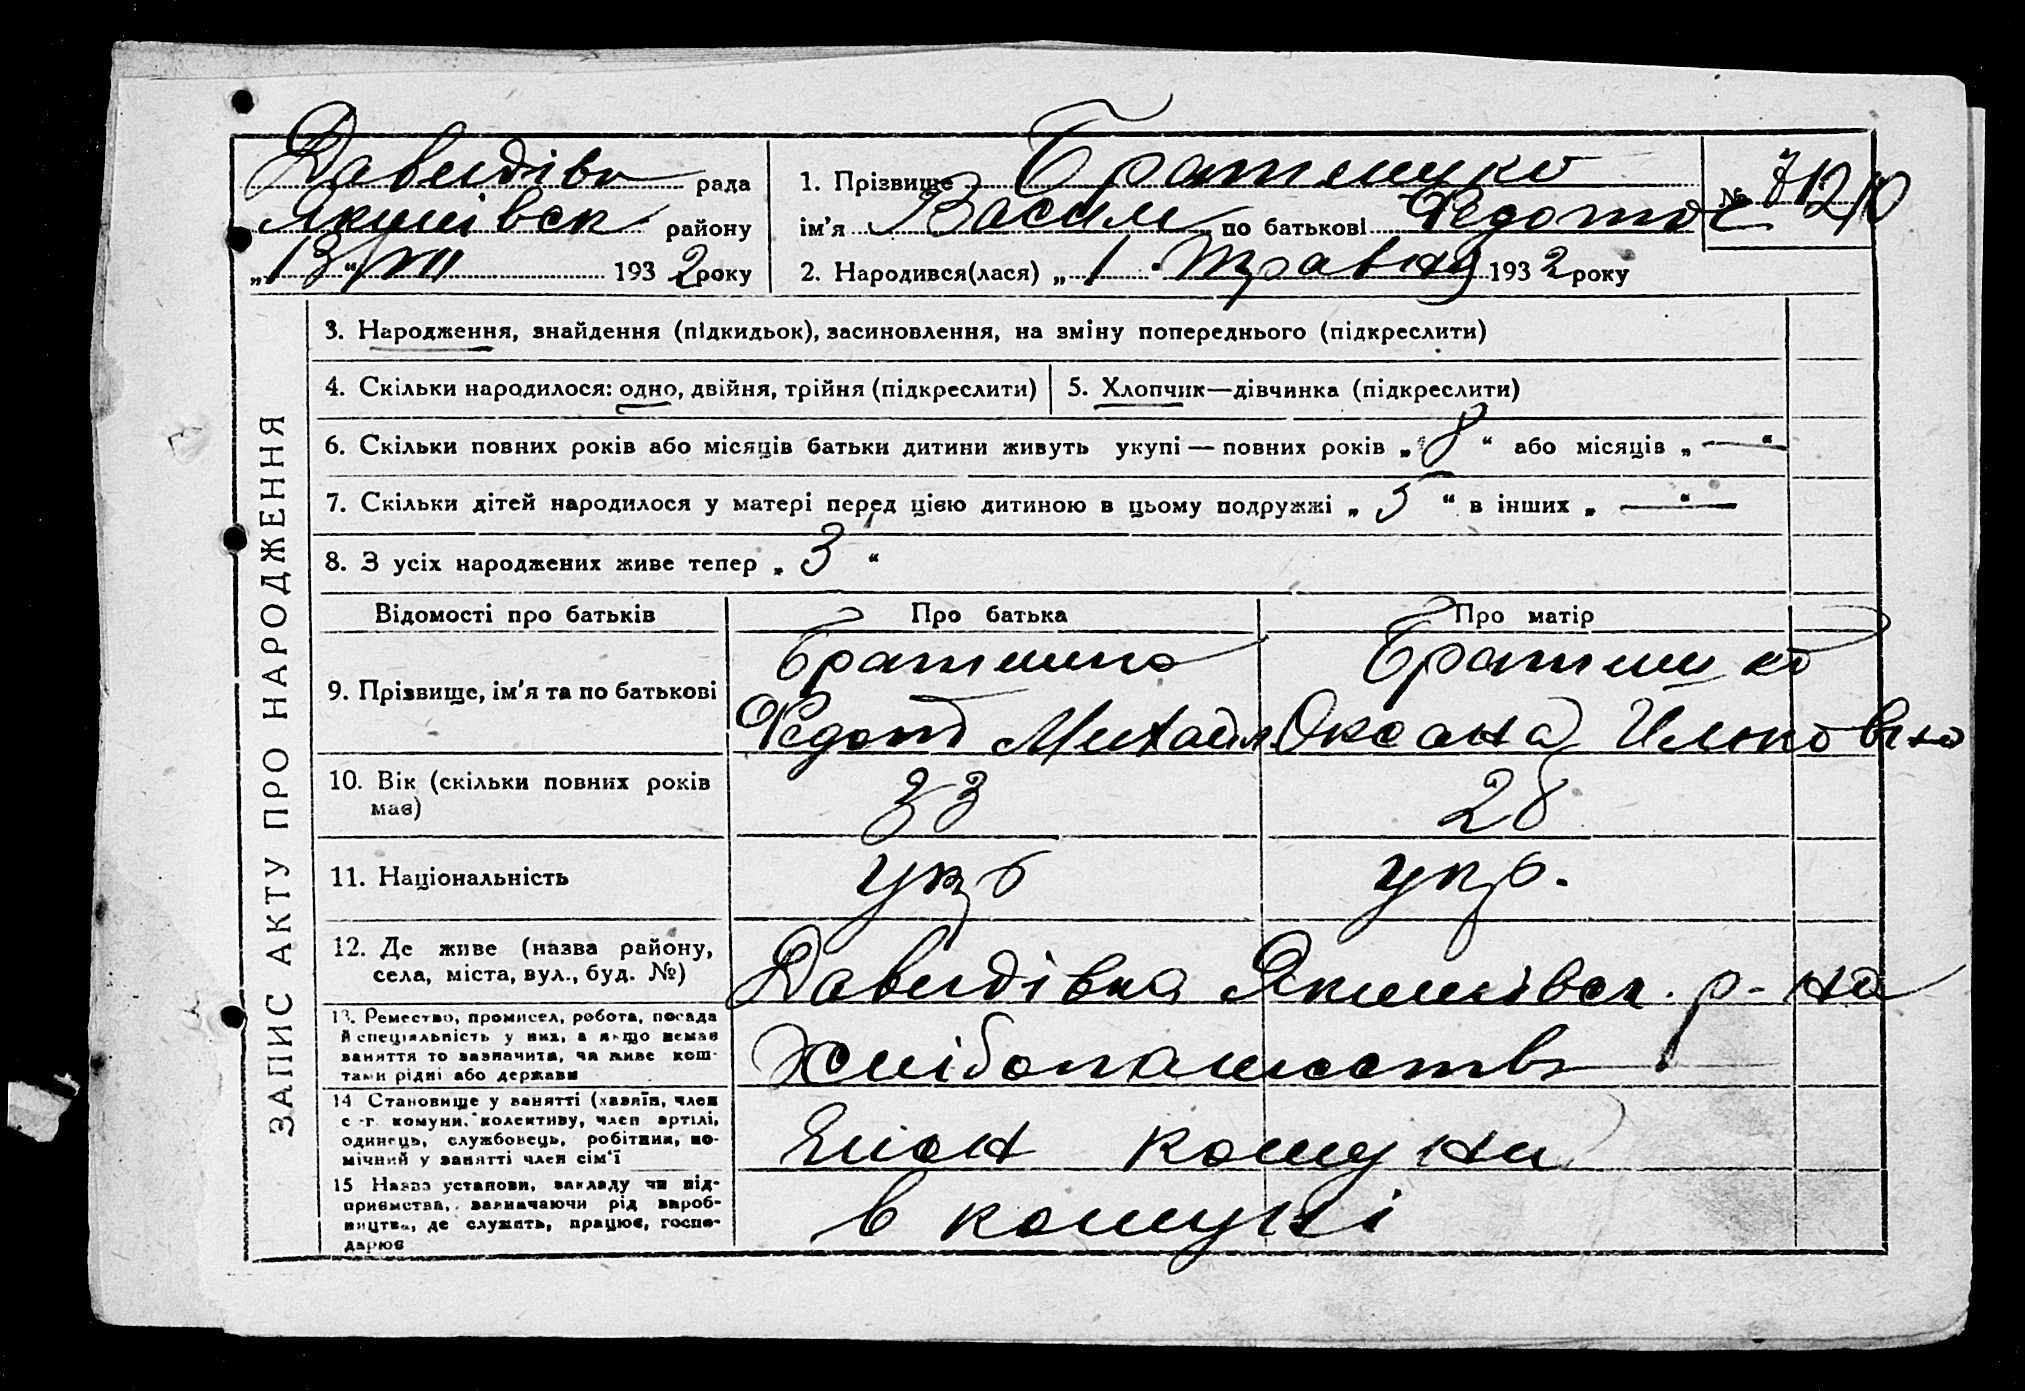 Давидівн рада
Якимівськ району
„13“ VIII 1932 року
1. Прізвище Братишко
ім'я Васил по батькові Федотов
№
2. Народився(лася) „1“ Травня 1932 року
ЗАПИС АКТУ ПРО НАРОДЖЕННЯ
3. Народження, знайдення (підкидьок), засиновлення, на зміну попереднього (підкреслити)
4. Скільки народилося: одно, двійня, трійня (підкреслити)
5. Хлопчик—дівчинка (підкреслити)
6. Скільки повних років або місяців батьки дитини живуть укупі — повних років „8“ або місяців „—“
7. Скільки дітей народилося у матері перед цією дитиною в цьому подружжі „5“ в інших „—“
8. З усіх народжених живе тепер „3“
Відомості про батьків Про батька Про матір
9. Прізвище, ім'я та по батькові
Братишко
Федот Михайл
Братишко
Оксана Ильковна
10. Вік (скільки повних років
має)
33 28
11. Національність укр. укр.
12. Де живе (назва району,
села, міста, вул., буд. №)
Давидівка Якимівск. р-на
13. Ремество, промисел, робота, посада
й спеціяльність у них, а якщо немає
заняття то зазначити, чи живе кош-
тами рідні або держави
Хлібопашеств
14 Становище у занятті (хазяїн, член
с-г. комуни, колективу, член артілі,
одинець, службовець, робітник, по-
мічний у занятті член сім'ї
Член комуни
15 Назва установи, закладу чи під-
приємства, зазначаючи рід вироб-
ництва, де служить, працює, госпо-
дарює
в комуні